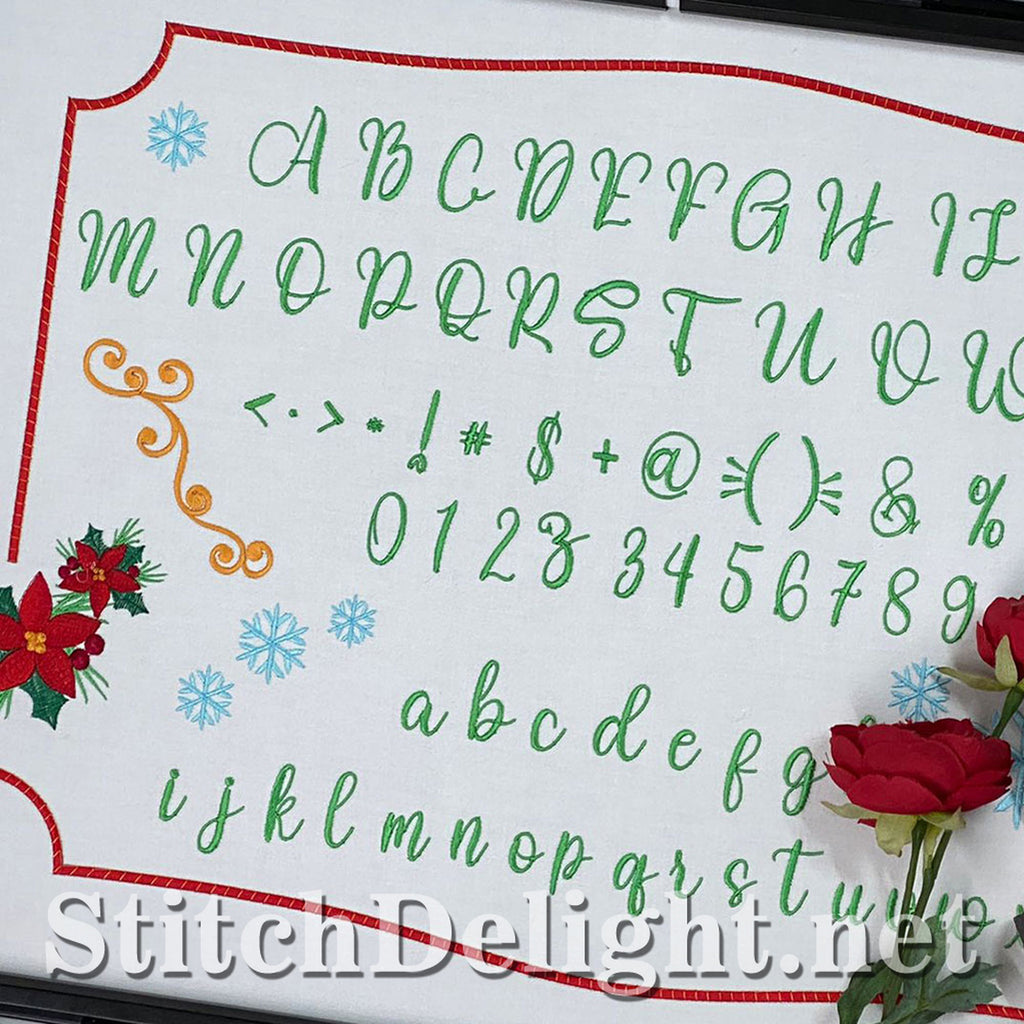 A B C D E F G H I J
M N O P Q R S T U V W
< · > * ! # $ + @ ( ) & %
0 1 2 3 3 4 5 6 7 8 9
a b c d e f g
i j k l m n o p q r s t u v w
StitchDelight.net